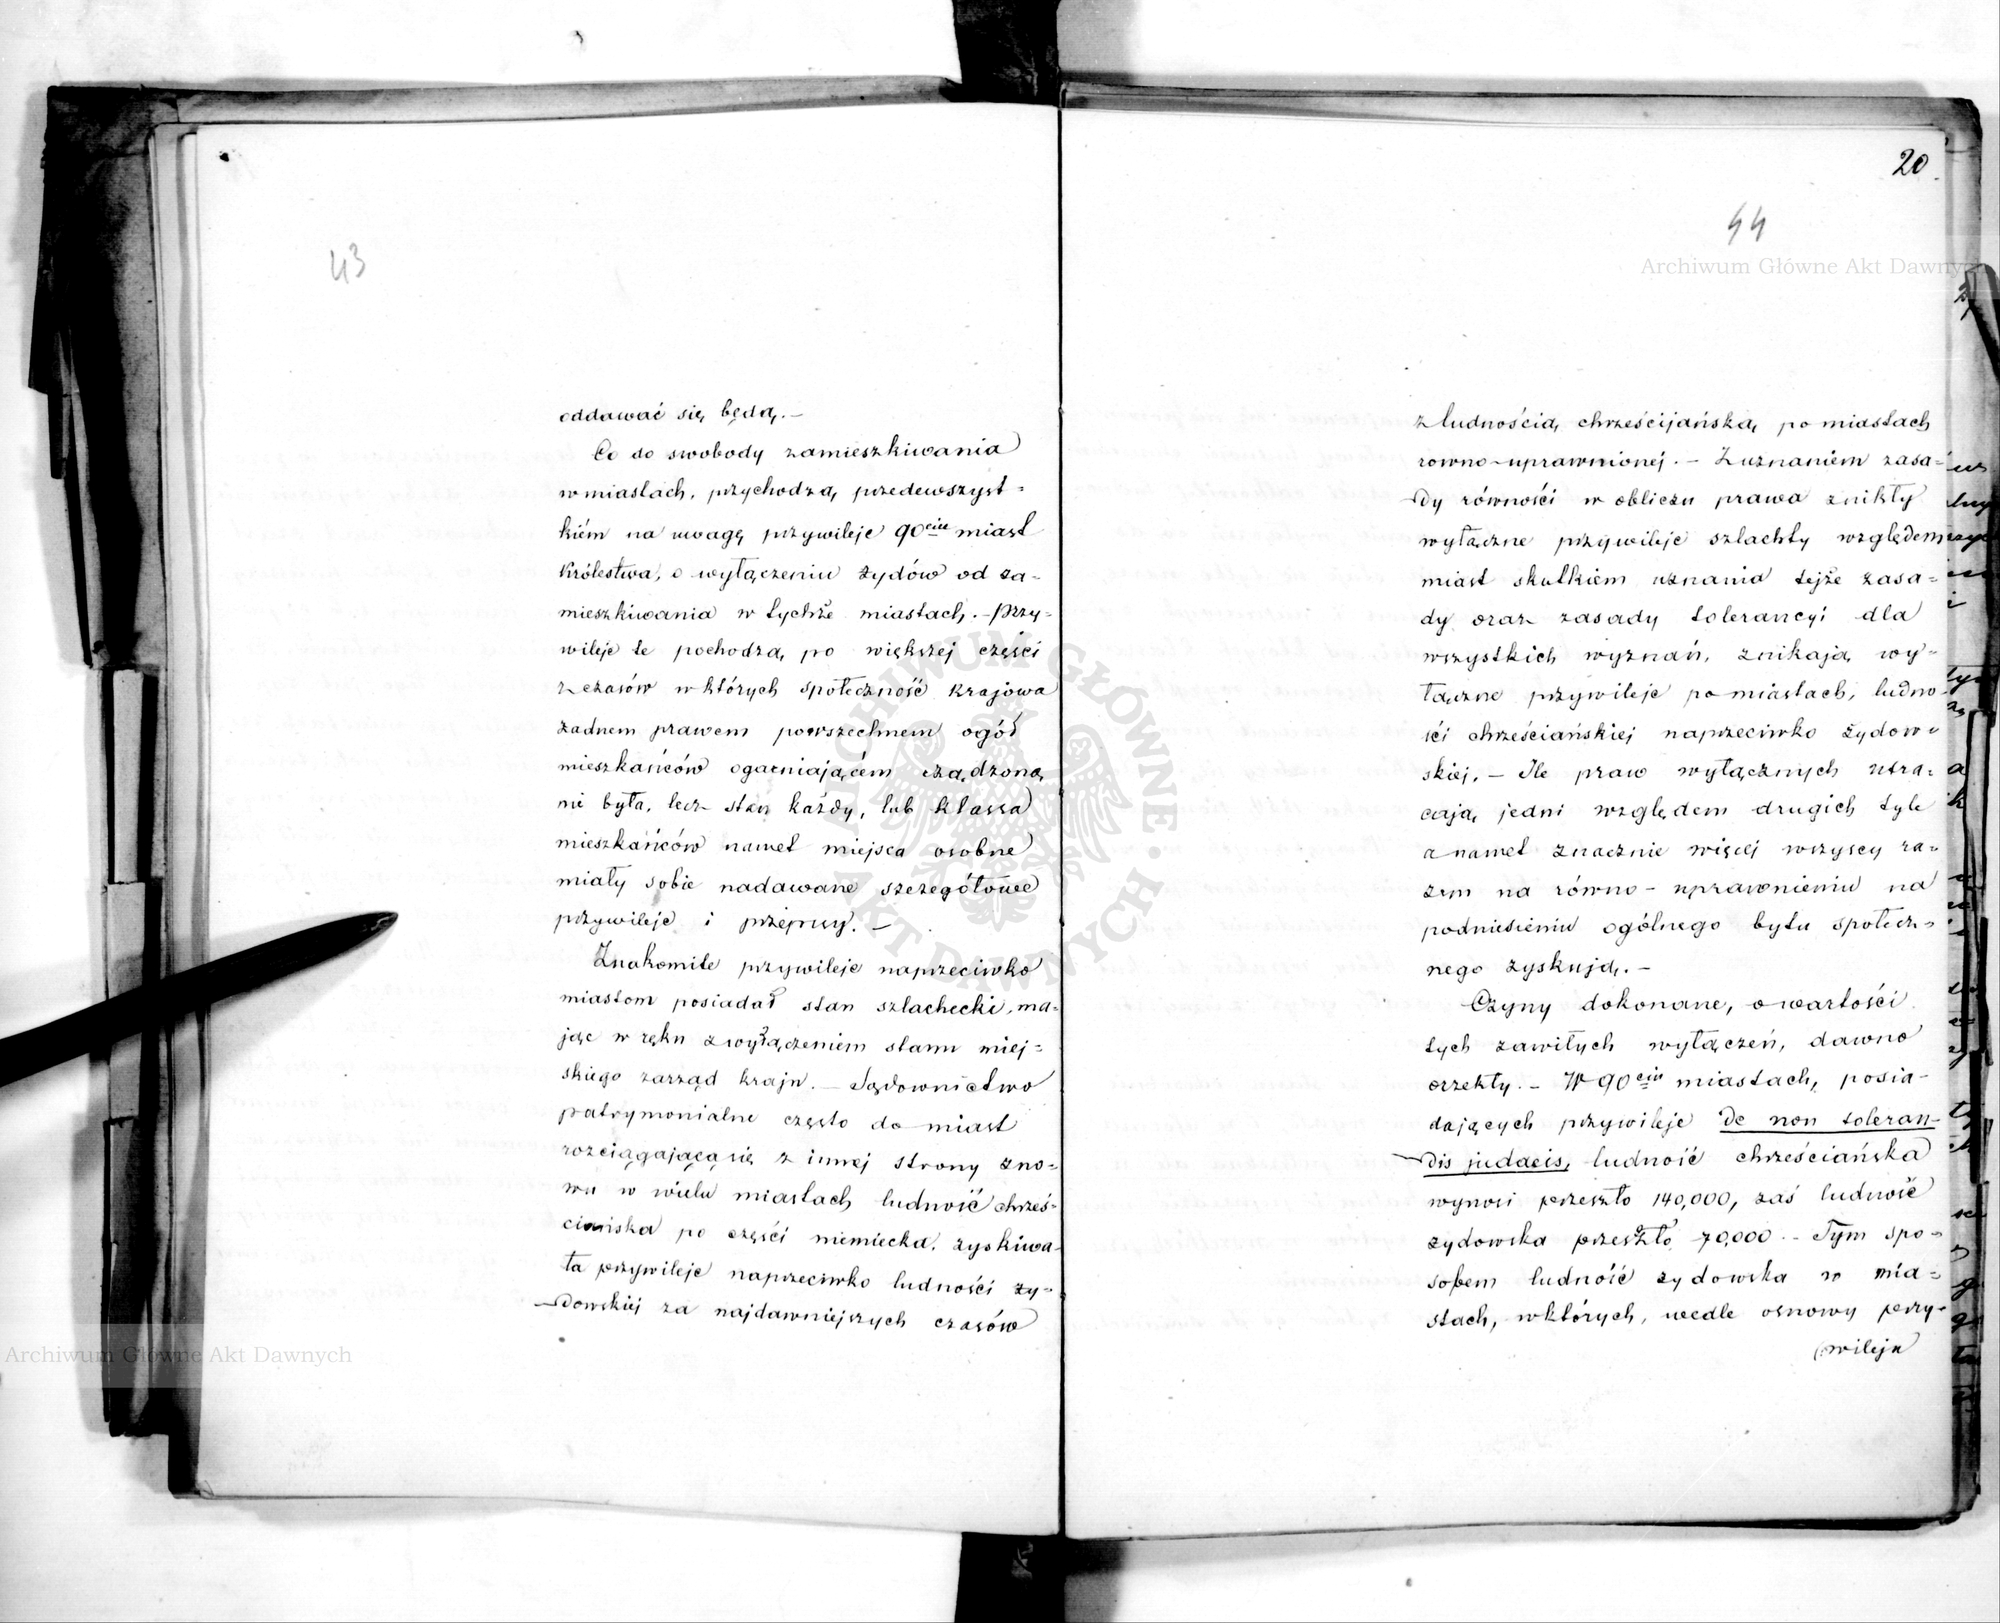 43
oddawać się będą. –
Co do swobody zamieszkiwania
w miastach, przychodzą przedewszyst=
kiém na uwagę przywileje 90ciu miast
Królestwa, o wyłączeniu żydów od za=
mieszkiwania w tychże miastach. – Przy=
wileje te pochodzą po większej części
z czasów w których społeczność krajowa
żadnem prawem powszechnem ogół
mieszkańców ogarniającém rządzoną
nie była, lecz stan każdy, lub klassa
mieszkańców nawet miejsca osobne
miały sobie nadawane szczegółowe
przywileje i przepisy. –
Znakomite przywileje naprzeciwko
miastom posiadał stan szlachecki, ma=
jąc w ręku z wyłączeniem stanu miej=
skiego zarząd kraju. – Sądownictwo
patrymonialne często do miast
rozciągające się z innej strony zno=
wu w wielu miastach ludność chrześ=
ciańska po części niemiecka, zyskiwa=
ła przywileje naprzeciwko ludności ży=
dowskiej za najdawniejszych czasów
20
44
Archiwum Główne Akt Dawnych
z ludnością chrześcijańską po miastach
rowno-uprawnionej. – Z uznaniem zasa=
dy równości w obliczu prawa znikły
wyłączne przywileje szlachty względem
miast skutkiem uznania tejże zasa=
dy oraz zasady tolerancyi dla
wszystkich wyznań, znikają wy=
łączne przywileje po miastach, ludno=
ści chrześciańskiej naprzeciwko żydow=
skiej. – Ile praw wyłącznych utra=
cają jedni względem drugich tyle
a nawet znacznie więcej wszyscy ra=
zem na równo-uprawnieniu na
podniesieniu ogólnego bytu społecz=
nego zyskują. –
Czyny dokonane, o wartości
tych zawiłych wyłączeń, dawno
orzekły. – W 90ciu miastach, posia=
dających przywileje de non toleran=
dis judaeis, ludność chrześciańska
wynosi przeszło 140,000, zaś ludność
żydowska przeszło 70,000. – Tym spo=
sobem ludność żydowska w mia=
stach, w których, wedle osnowy przy=
(wileju
ARCHIWUM GŁÓWNE · AKT DAWNYCH ·
Archiwum Główne Akt Dawnych